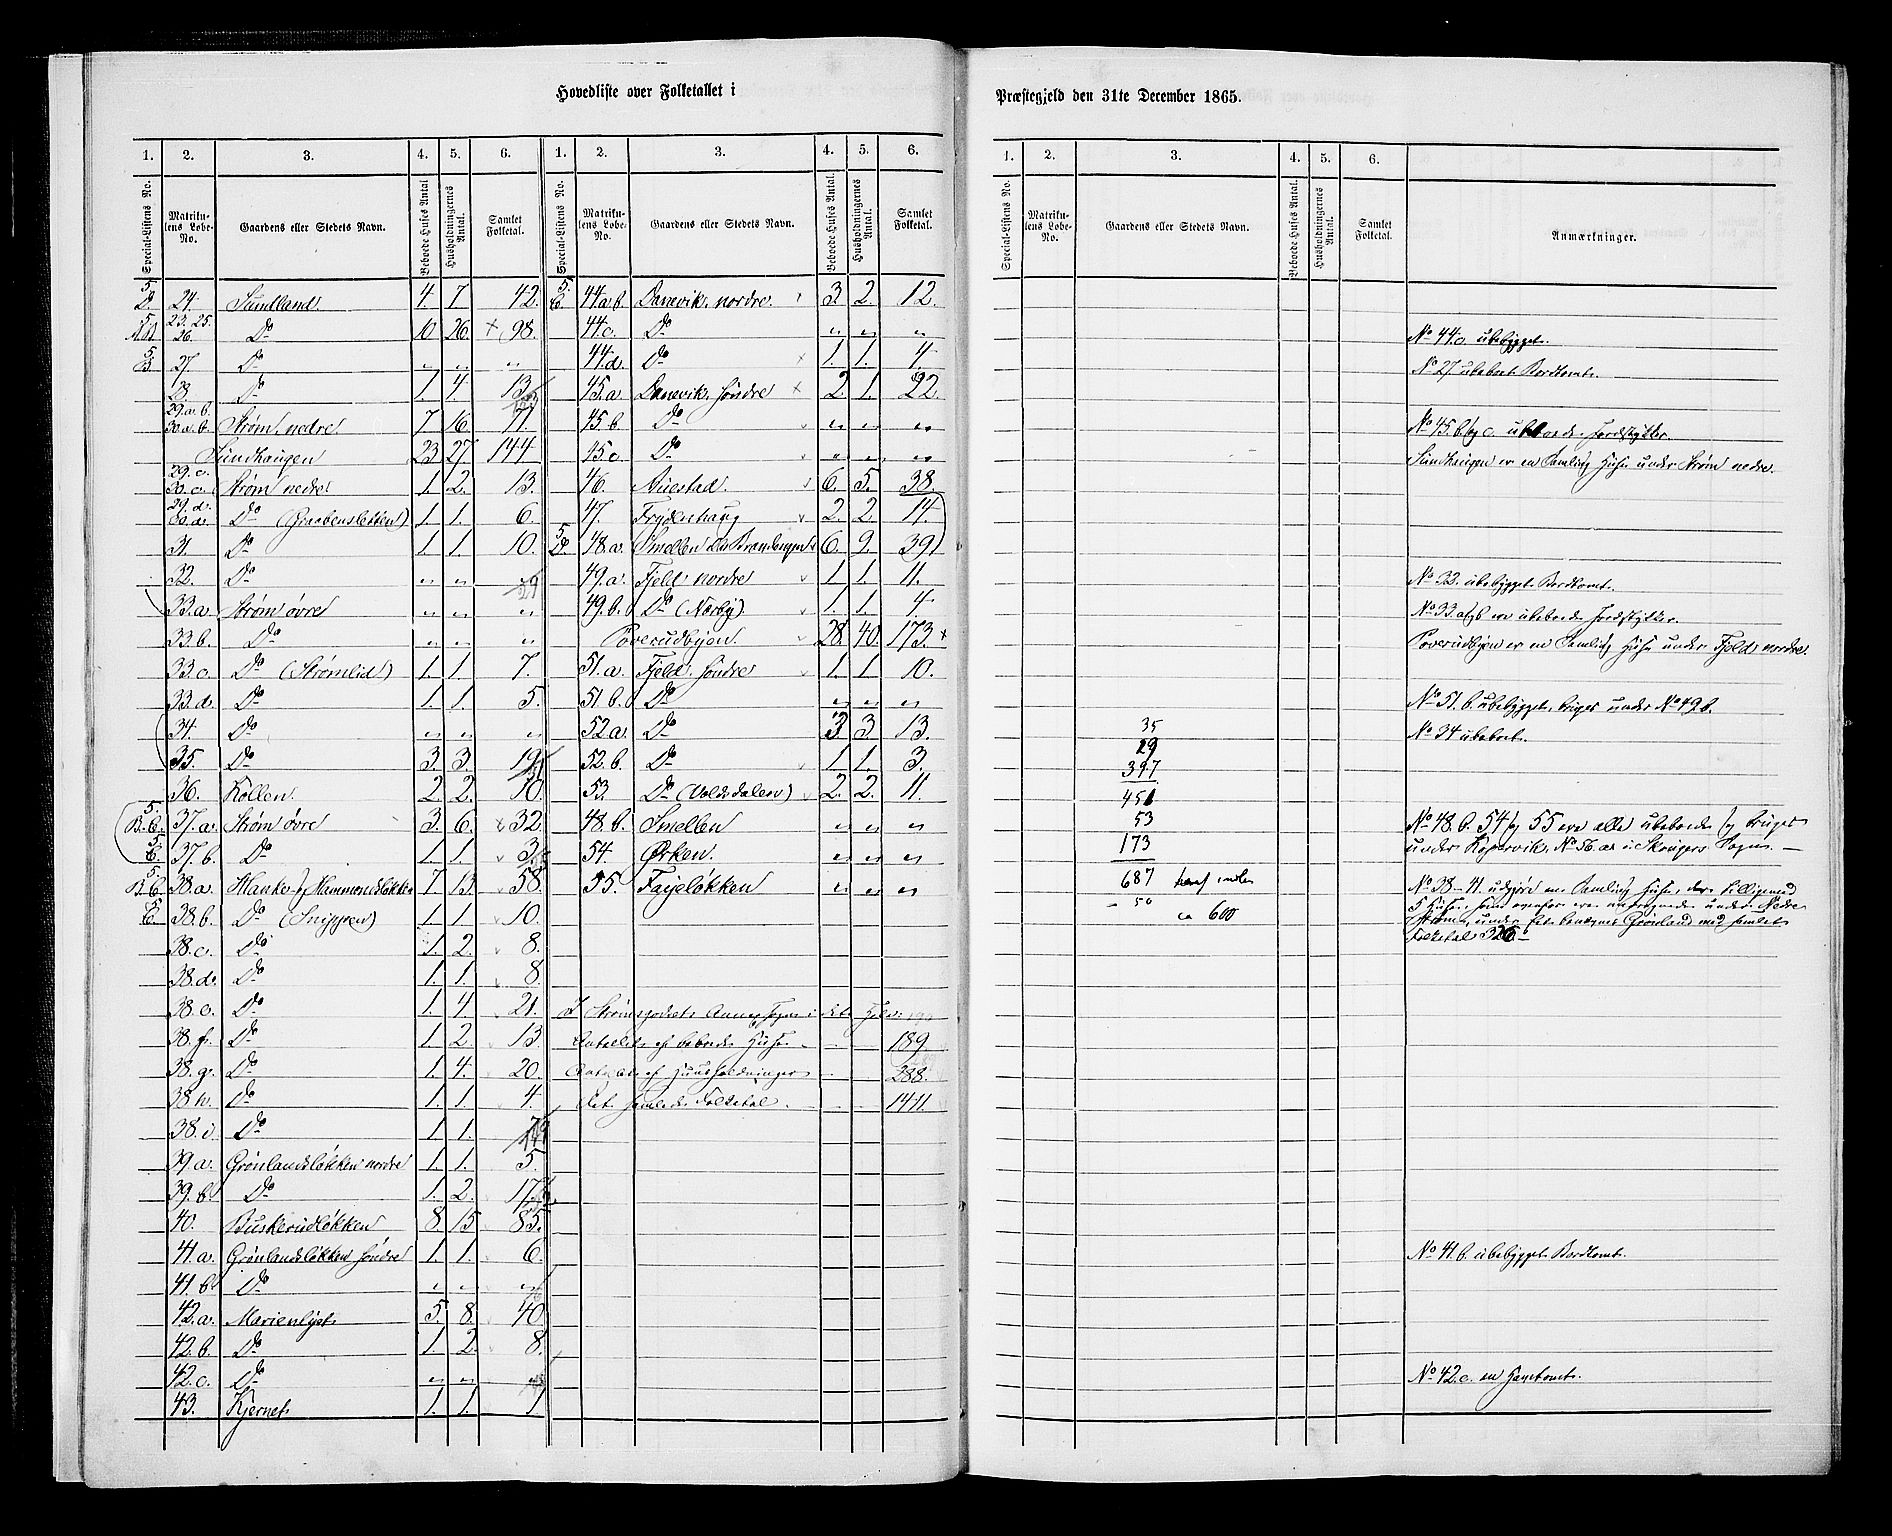 Hovedliste over Folketallet i
Præstegjeld den 31te December 1865.
1. 2. 3. 4. 5. 6. 1. 2. 3. 4. 5. 6.
Special-Listens No. Matrikulens Løbe-No. Gaardens eller Stedets Navn. Beboede Huses Antal Husholdningernes Antal. Samlet Folketal. Special-Listens No. Matrikulens Løbe-No. Gaardens eller Stedets Navn. Beboede Huses Antal. Husholdningernes Antal. Samlet Folketal.
5. D. 24. Sundland. 4 7 42.
23. 25. 26. Do 10 26. + 98.
5 B. 27. Do " " "
28. Do 1 4 13
29. a. b. 30. a. b. Strøm, nedre. 7 16 71.
Sundhaugen 23 27 144
29. c. 30. c. Strøm nedre 1. 2. 13.
29. d. 30. d. Do (Graabensletten) 1. 1. 6.
31. Do 1 1. 10.
32. Do " " "
33. a. Strøm øvre " " "
33. b. Do " " "
33. c. Do (Strømlid) 1. 1. 7.
33. d. Do 1. 1. 5.
34. Do " " "
35. Do 3. 3. 19
36. Kollen. 2. 2. 10.
5. B. C. 37. a. Strøm øvre 3. 6. 32
5 C. 37. b. Do 1 1. 3
5. B. C. 38. a. Hanke & Hammondsløkken 7. 13. 58.
5 C. 38. b. Do (Snippen) 1 1. 10.
38. c. Do 1. 2. 8.
38. d. Do 1. 1. 8.
38. e. Do 1. 4. 21.
38. f. Do 1. 2. 13.
38. g. Do 1. 4. 20.
38 h. Do 1 1. 4.
38. i. Do 1 1. 7
39 a. Grønlandsløkken nordre 1. 1. 5.
39. b. Do 1. 2. 17.
40. Buskerudløkken 8. 15 85.
41. a. Grønlandsløkken søndre 1. 1. 6.
41. b. Do " " "
42. a. Marienlyst 5. 8. 40
42. b. Do 1. 2 8.
42. c. Do " " "
43. Kjernet 1. 1. 1.
5. C. 44 a b. Danevik, nordre. 3. 2. 12.
44. c. Do " " "
44. d. Do 1. 1. 4.
45. a. Danevik, søndre 2. 1. 22.
45. b Do " " "
45 c. Do " " "
46. Austad. 6. 5. 38.
47. Frydenhaug 2. 2. 14.
5 D. 48. a. Smellen el. Brandengen 6. 9. 39
49. a. Fjeld nordre 1. 1. 11.
49. b. Do (Nørby). 1. 1. 4
Toverudbyen. 28. 40. 173. +
51. a. Fjeld, søndre 1. 1. 10.
51 b. Do " " "
52 a. Do 3 3 13.
52. b. Do 1 1. 3.
53. Do (Voldsdalen) 2. 2. 11.
48. b. Smellen " " "
54. Ørken. " " "
55. Fayeløkken " " "
I Strømsgodsets Annexsogn i dets Hele:
Antallet af beboede Huse 189.
Antallet af Huusholdninger 288.
Det samlede Folketal 1411.
1. 2. 3. 4. 5. 6.
Special-Listens No. Matrikulens Løbe-No. Gaardens eller Stedets Navn. Beboede Huses Antal. Husholdningernes Antal. Samlet Folketal. Anmærkninger.
35
29
397
451
53
173
687
- 50
ca 600
No 44 c. ubebygget.
No 27. ubeboet Bordtomt.
No 45. b. og c. ubeboede Jordstykker.
Sundhaugen er en Samling Huse under Strøm nedre.
No 32. ubebygget Bordtomt.
No 33. a og b ere ubeboede Jordstykker.
Toverudbyen er en Samling Huse under Fjeld nordre.
No 51. b. ubebygget, bruges under No 49. b.
No 34 ubeboet.
No 48. b. 54 og 55 ere alle ubeboede og bruges
under Kopervik, No 56. a. i Skougers Sogn. —
No 38-41. udgjøre en Samling Huse, der tilligemed
5 Huse, som ovenfor ere anførte under Nedre
Strøm, under Et benævnes Grønland med samlet
Folketal 326-
No 41. b. ubebygget Bordtomt.
No 42. c. en Havetomt.